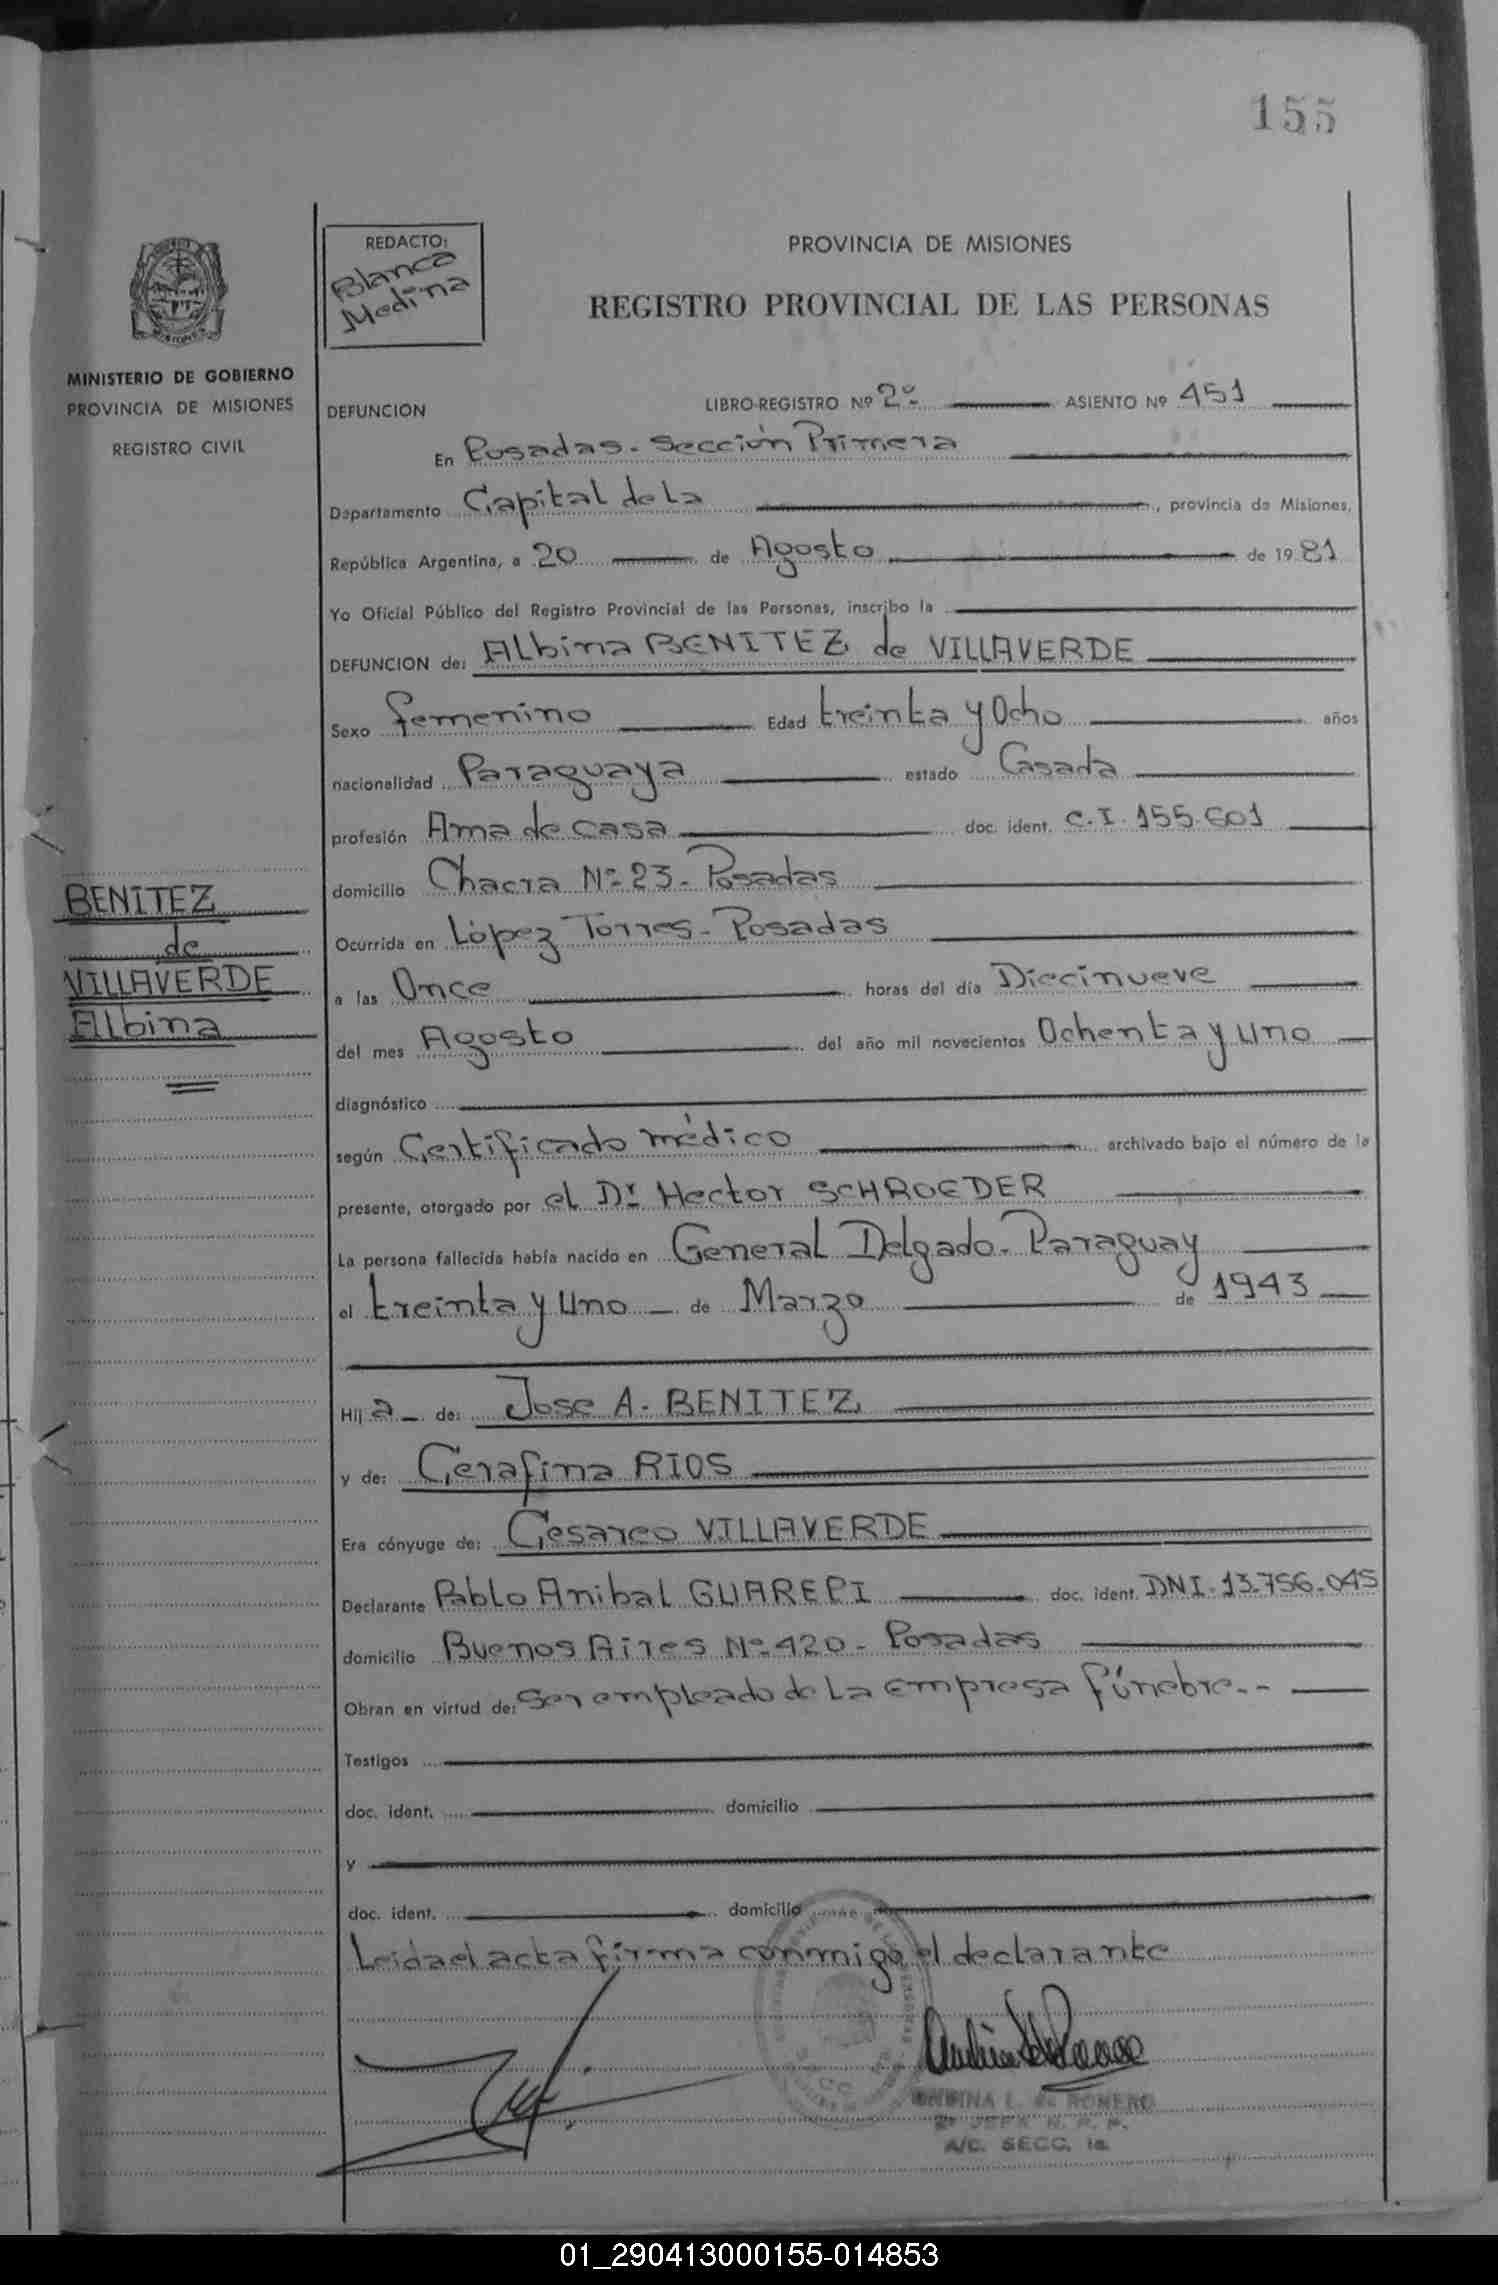 155
REDACTO:
Blanca
Medina
PROVINCIA DE MISIONES
REGISTRO PROVINCIAL DE LAS PERSONAS
MINISTERIO DE GOBIERNO
PROVINCIA DE MISIONES
REGISTRO CIVIL
DEFUNCION LIBRO-REGISTRO Nº 2º ASIENTO Nº 451
En Posadas - Sección Primera
Departamento Capital de La , provincia de Misiones,
República Argentina, a 20 de Agosto de 1981
Yo Oficial Público del Registro Provincial de las Personas, inscribo la
DEFUNCION de: Albina BENITEZ de VILLAVERDE
Sexo femenino Edad treinta y Ocho años
nacionalidad Paraguaya estado Casada
profesión Ama de casa doc. ident. C.I. 155.601
domicilio Chacra Nº 23 - Posadas
BENITEZ
de
VILLAVERDE
Albina
Ocurrida en López Torres - Posadas
a las Once horas del día Diecinueve
del mes Agosto del año mil novecientos Ochenta y uno
diagnóstico
según Certificado médico archivado bajo el número de la
presente, otorgado por el Dr Hector SCHROEDER
La persona fallecida había nacido en General Delgado - Paraguay
el treinta y Uno de Marzo de 1943
Hija de: Jose A. BENITEZ
y de: Cerafina RIOS
Era cónyuge de: Cesareo VILLAVERDE
Declarante Pablo Anibal GUAREPI doc. ident. DNI. 13.756.045
domicilio Buenos Aires Nº 420 - Posadas
Obran en virtud de: Ser empleado de La empresa fúnebre.-
Testigos
doc. ident. domicilio
y
doc. ident. domicilio
Leida el acta firma conmigo el declarante
L. de ROMERO
2º JEFA R. P. P.
A/C. SECC. 1a.
01_290413000155-014853